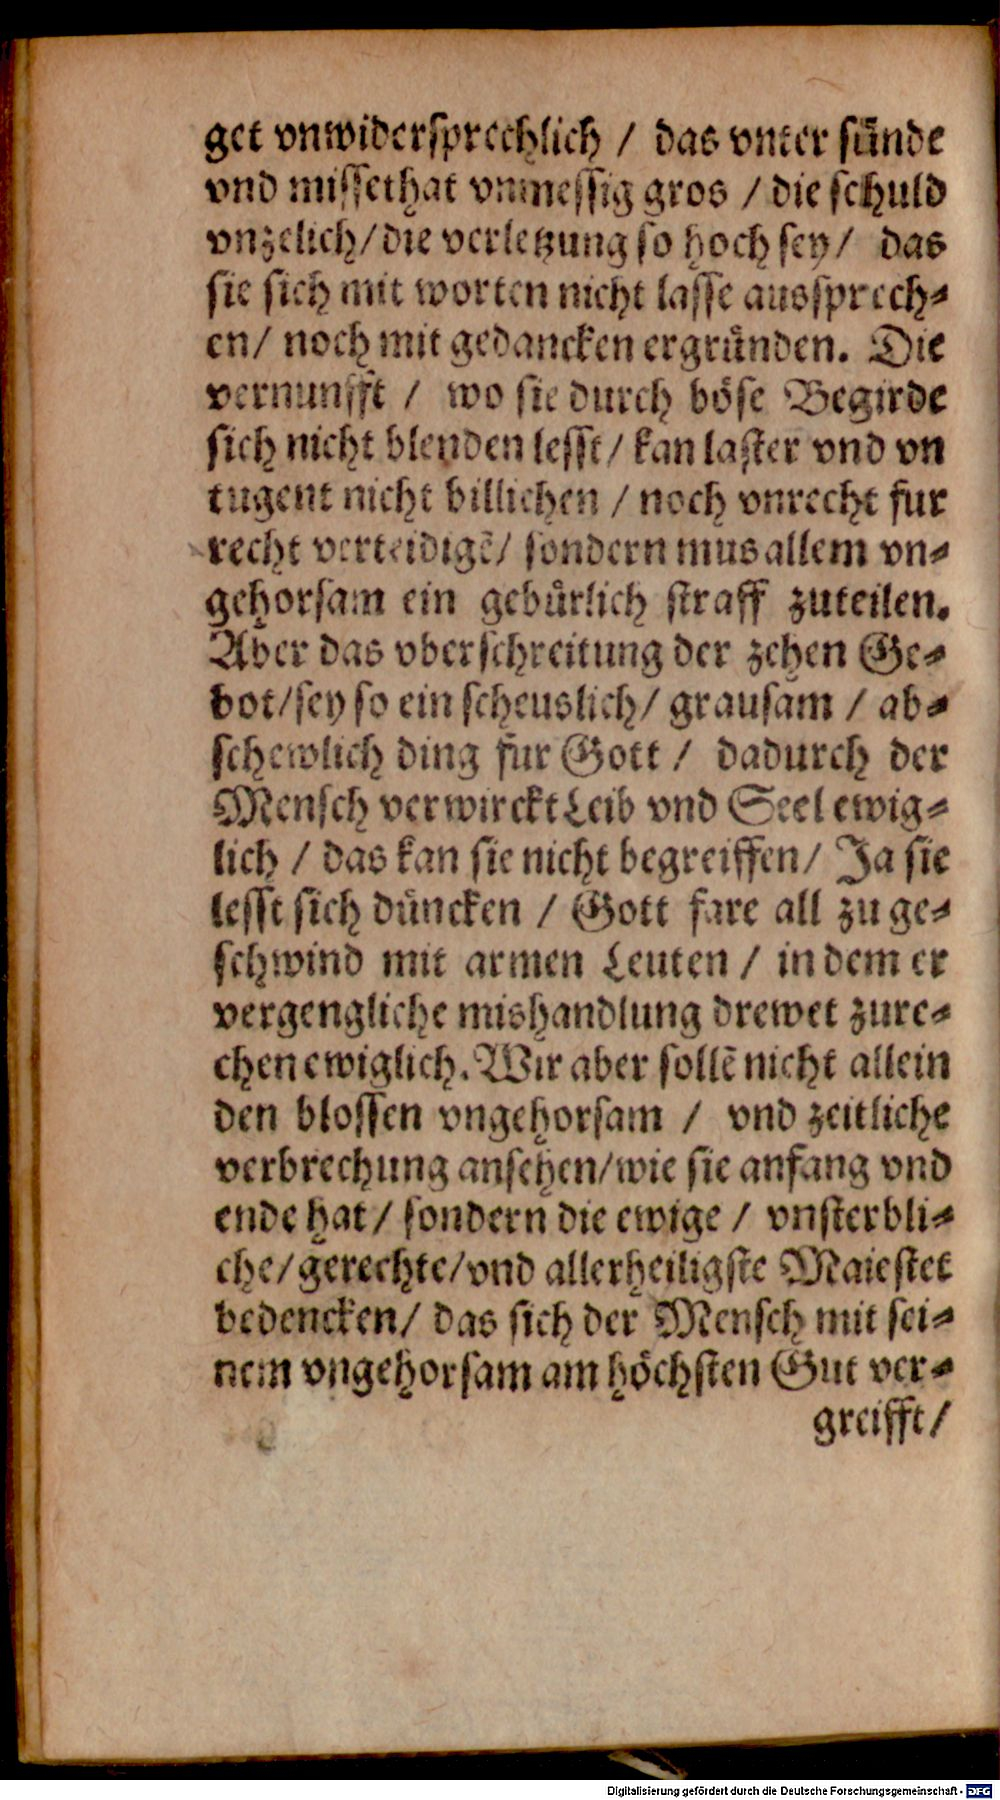 get vnwidersprechlich / das vnser sünde
vnd missethat vnmessig gros / die schuld
vnzelich/die verletzung so hoch sey/ das
sie sich mit worten nicht lasse aussprech⸗
en/ noch mit gedancken ergründen. Die
vernunfft / wo sie durch böse Begirde
sich nicht blenden lesst/ kan laster vnd vn
tugent nicht billichen / noch vnrecht fur
recht verteidigẽ/ sondern mus allem vn⸗
gehorsam ein gebürlich straff zuteilen.
Aber das vberschreitung der zehen Ge⸗
bot/sey so ein scheuslich/ grausam / ab⸗
schewlich ding für Gott / dadurch der
Mensch verwirckt Leib vnd Seel ewig⸗
lich / das kan sie nicht begreiffen/ Ja sie
lesst sich düncken / Gott fare all zu ge⸗
schwind mit armen Leuten / in dem er
vergengliche mishandlung drewet zure⸗
chen ewiglich. Wir aber sollẽ nicht allein
den blossen vngehorsam / vnd zeitliche
verbrechung ansehen/wie sie anfang vnd
ende hat/ sondern die ewige / vnsterbli⸗
che/gerechte/vnd allerheiligste Maiestet
bedencken/ das sich der Mensch mit sei⸗
nem vngehorsam am höchsten Gut ver⸗
greifft/
Digitalisierung gefördert durch die Deutsche Forschungsgemeinschaft - DFG